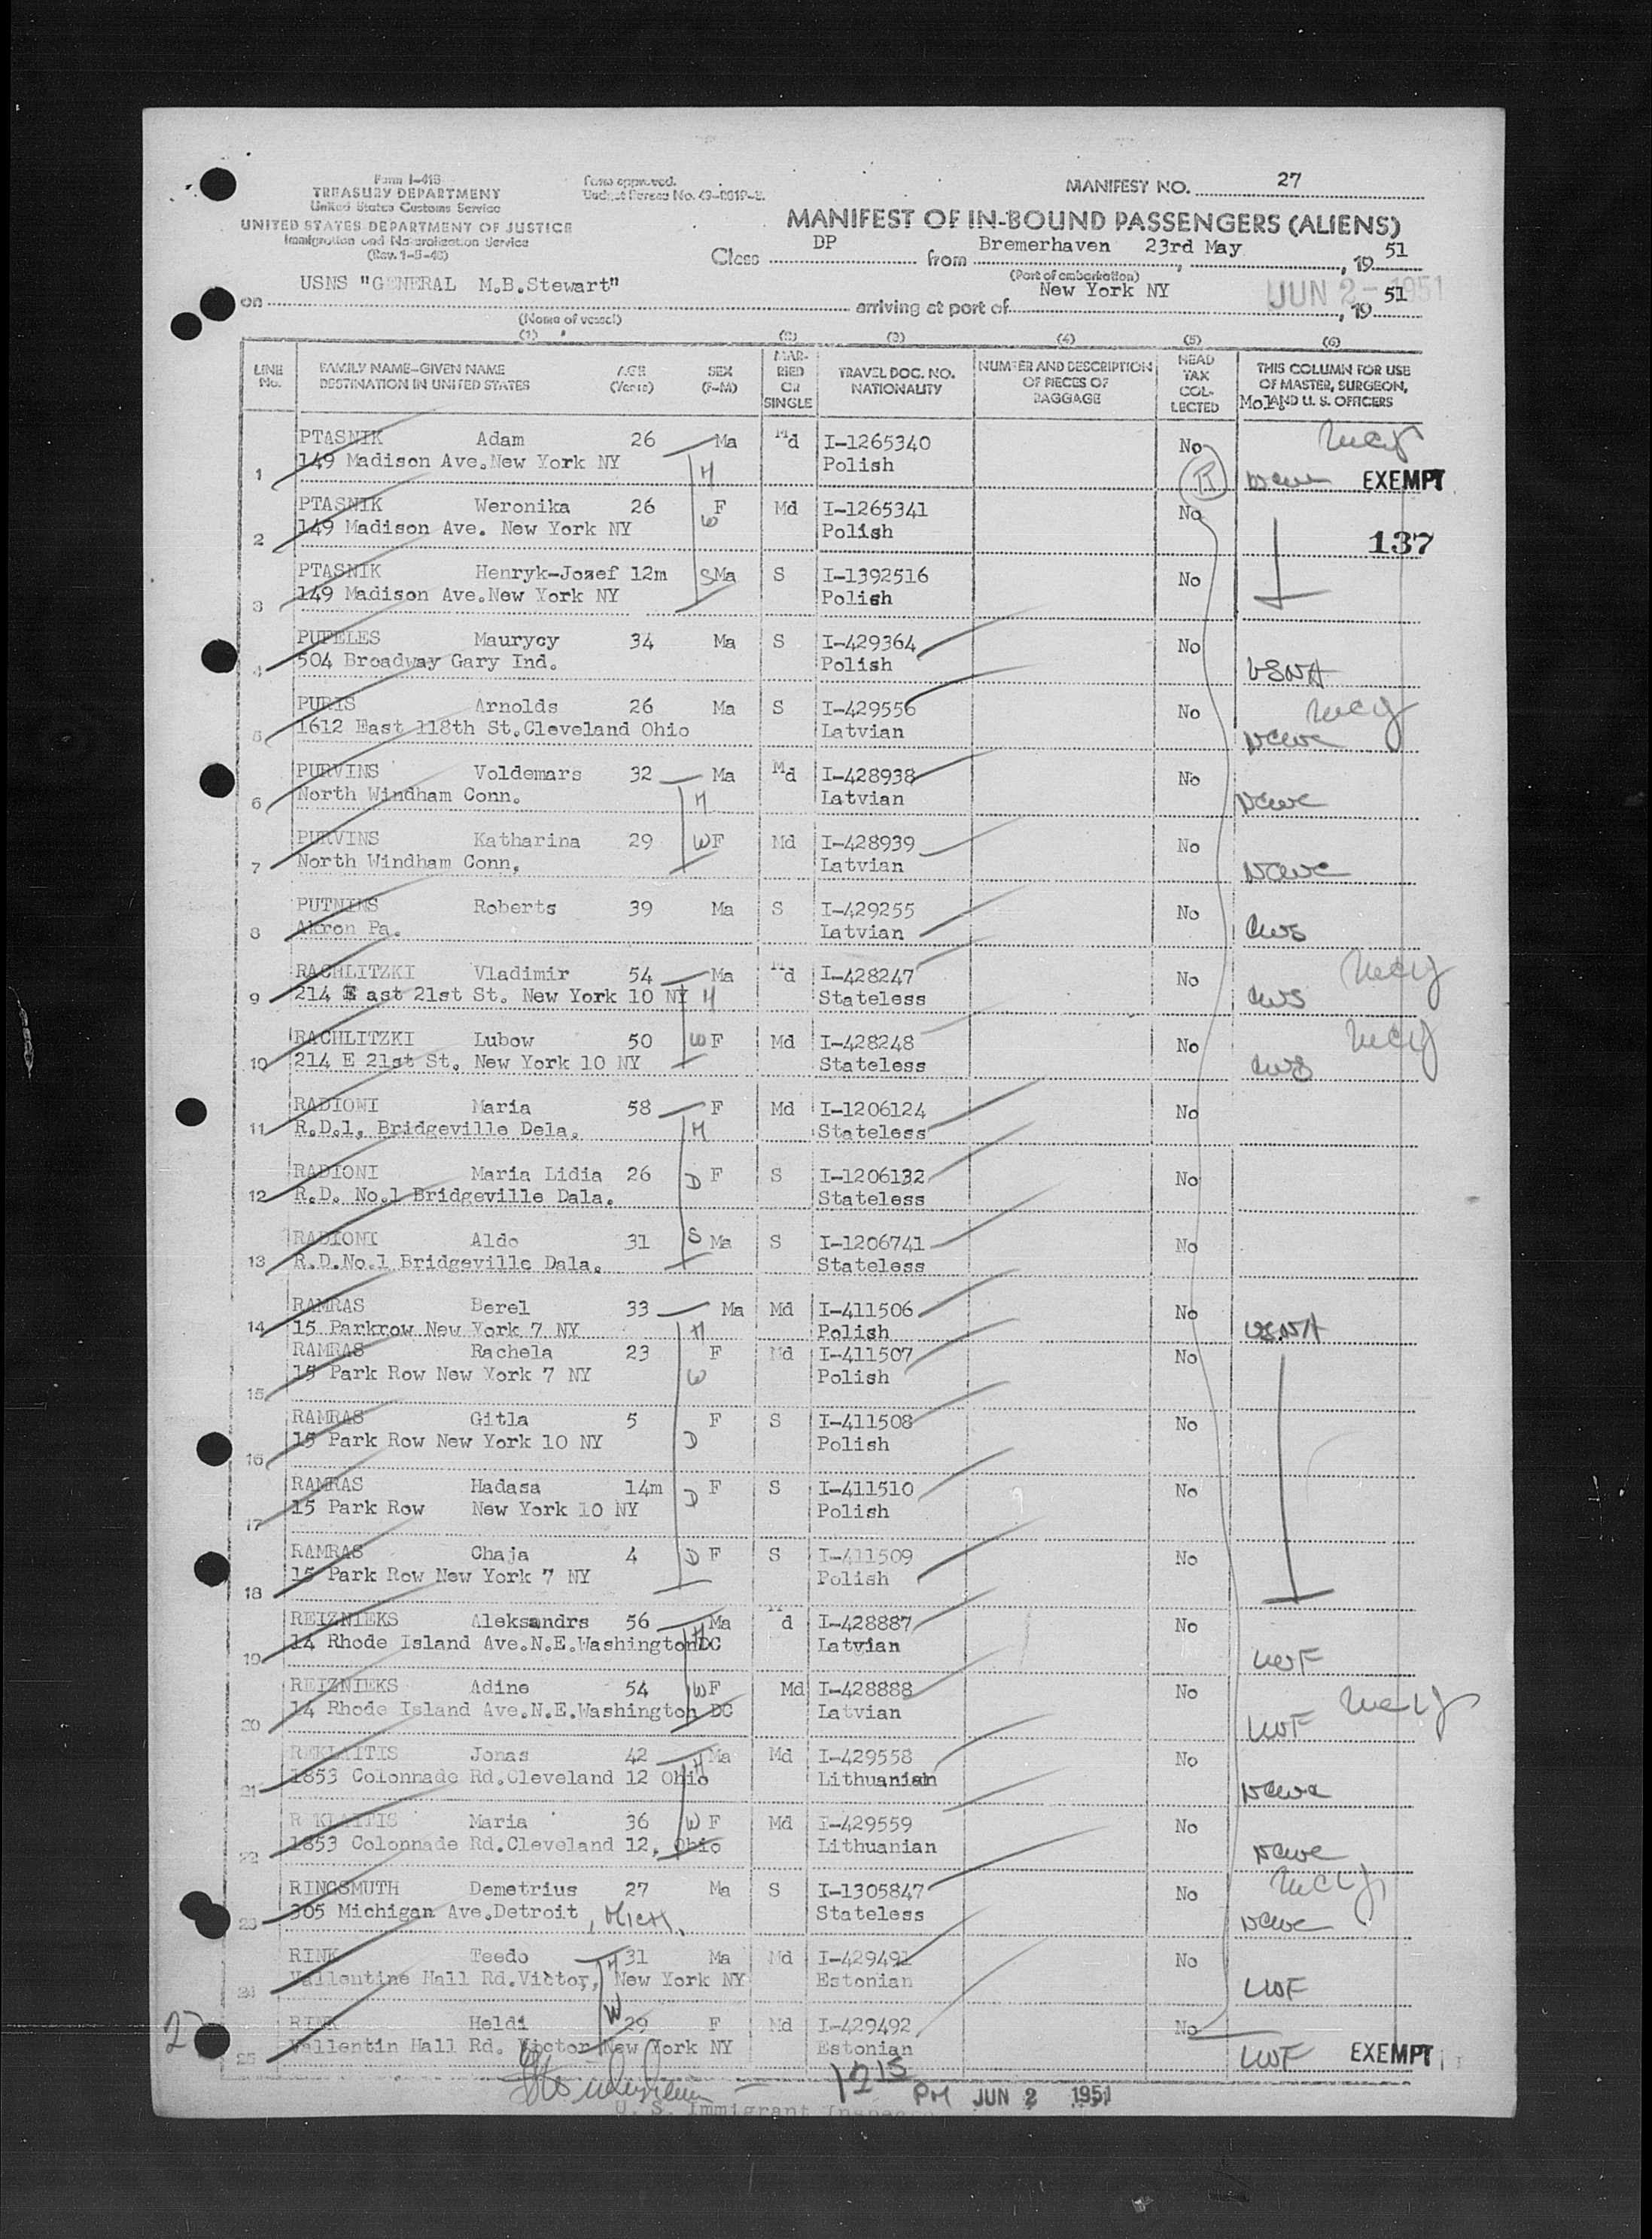 Form I-418
TREASURY DEPARTMENT
United States Customs Service
UNITED STATES DEPARTMENT OF JUSTICE
Immigration and Naturalization Service
Form approved.
MANIFEST NO. 27
MANIFEST OF IN-BOUND PASSENGERS (ALIENS)
Class DP from Bremerhaven 23rd May, 1951
(Port of embarkation)
on USNS "GENERAL M.B.Stewart" arriving at port of New York NY JUN 2-1951, 1951
(Name of vessel)
(1) (2) (3) (4) (5) (6)
LINE No. FAMILY NAME—GIVEN NAME DESTINATION IN UNITED STATES AGE (Years) SEX (F-M) MARRIED OR SINGLE TRAVEL DOC. NO. NATIONALITY NUMBER AND DESCRIPTION OF PIECES OF BAGGAGE HEAD TAX COLLECTED THIS COLUMN FOR USE OF MASTER, SURGEON, AND U. S. OFFICERS
PTASNIK Adam 26 Ma Md I-1265340 No
1 149 Madison Ave.New York NY H Polish R ncwc EXEMPT
PTASNIK Weronika 26 W F Md I-1265341 No
2 149 Madison Ave. New York NY Polish 137
PTASNIK Henryk-Jozef 12m S Ma S I-1392516 No
3 149 Madison Ave.New York NY Polish
PUFELES Maurycy 34 Ma S I-429364 No
4 504 Broadway Gary Ind. Polish USNA
PURIS Arnolds 26 Ma S I-429556 No
5 1612 East 118th St.Cleveland Ohio Latvian ncwc
PURVINS Voldemars 32 Ma Md I-428938 No
6 North Windham Conn. H Latvian ncwc
PURVINS Katharina 29 W F Md I-428939 No
7 North Windham Conn. Latvian ncwc
PUTNINS Roberts 39 Ma S I-429255 No
8 Akron Pa. Latvian cws
RACHLITZKI Vladimir 54 Ma Md I-428247 No
9 214 East 21st St. New York 10 NY H Stateless cws
RACHLITZKI Lubow 50 W F Md I-428248 No
10 214 E 21st St. New York 10 NY Stateless cws
RADIONI Maria 58 F Md I-1206124 No
11 R.D.1, Bridgeville Dela. Stateless
RADIONI Maria Lidia 26 D F S I-1206132 No
12 R.D. No.1 Bridgeville Dala. Stateless
RADIONI Aldo 31 S Ma S I-1206741 No
13 R.D.No.1 Bridgeville Dala. Stateless
RAMRAS Berel 33 Ma Md I-411506 No
14 15 Parkrow New York 7 NY H Polish USNA
RAMRAS Rachela 23 F Md I-411507 No
15 15 Park Row New York 7 NY W Polish
RAMRAS Gitla 5 F S I-411508 No
16 15 Park Row New York 10 NY D Polish
RAMRAS Hadasa 14m D F S I-411510 No
17 15 Park Row New York 10 NY Polish
RAMRAS Chaja 4 D F S I-411509 No
18 15 Park Row New York 7 NY Polish
REIZNIEKS Aleksandrs 56 H Ma d I-428887 No
19 14 Rhode Island Ave.N.E.WashingtonDC Latvian LWF
REIZNIEKS Adine 54 W F Md I-428888 No
20 14 Rhode Island Ave.N.E.Washington DC Latvian LWF
REKLAITIS Jonas 42 H Ma Md I-429558 No
21 1853 Colonnade Rd.Cleveland 12 Ohio Lithuanian ncwc
R KLAITIS Maria 36 W F Md I-429559 No
22 1853 Colonnade Rd.Cleveland 12, Ohio Lithuanian ncwc
RINGSMUTH Demetrius 27 Ma S I-1305847 No
23 305 Michigan Ave.Detroit, Mich. Stateless ncwc
RINK Teedo H 31 Ma Md I-429491 No
24 Vallentine Hall Rd.Victor, New York NY Estonian LWF
RINK Heldi W 29 F Md I-429492 No
25 Vallentin Hall Rd. Victor New York NY Estonian LWF EXEMPT
27
1215 PM JUN 2 1951
U. S. Immigrant Inspector